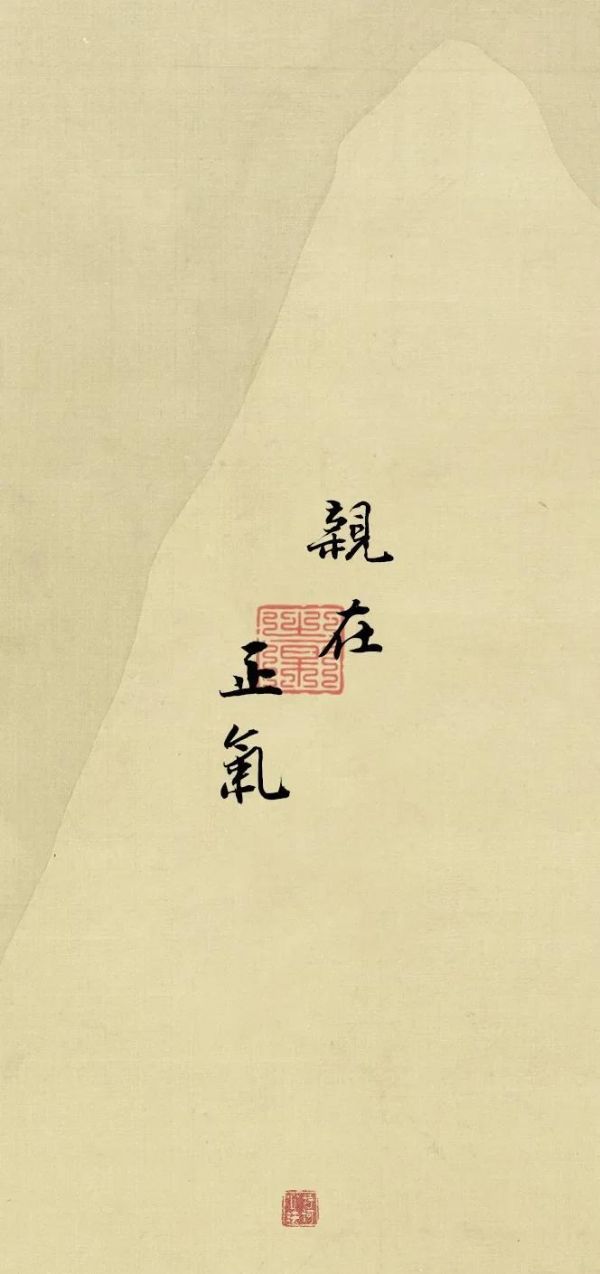 親在
正氣